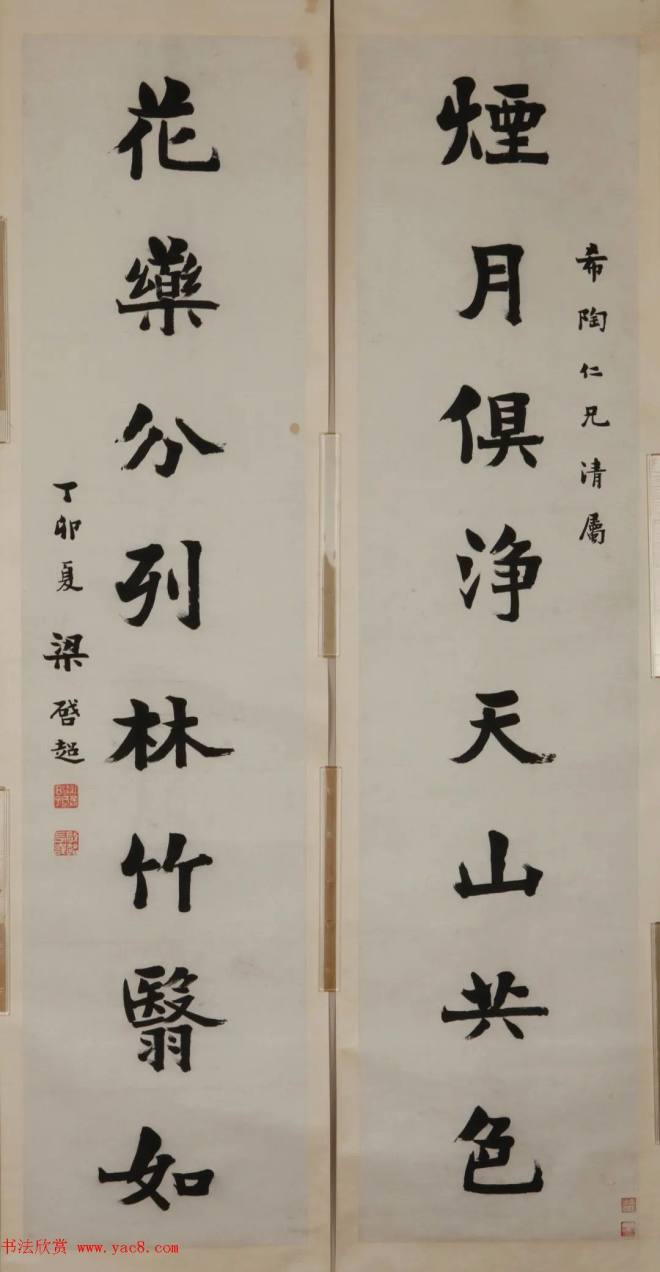 希陶仁兄清屬
煙月俱淨天山共色
花藥分列林竹翳如
丁卯夏 梁啓超
书法欣赏 www.yac8.com